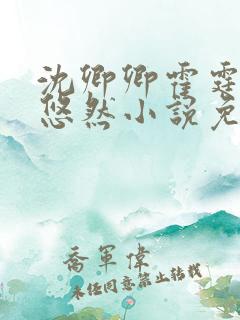 沈卿卿霍霆
悠然小说免
喬軍偉
未经同意禁止转载